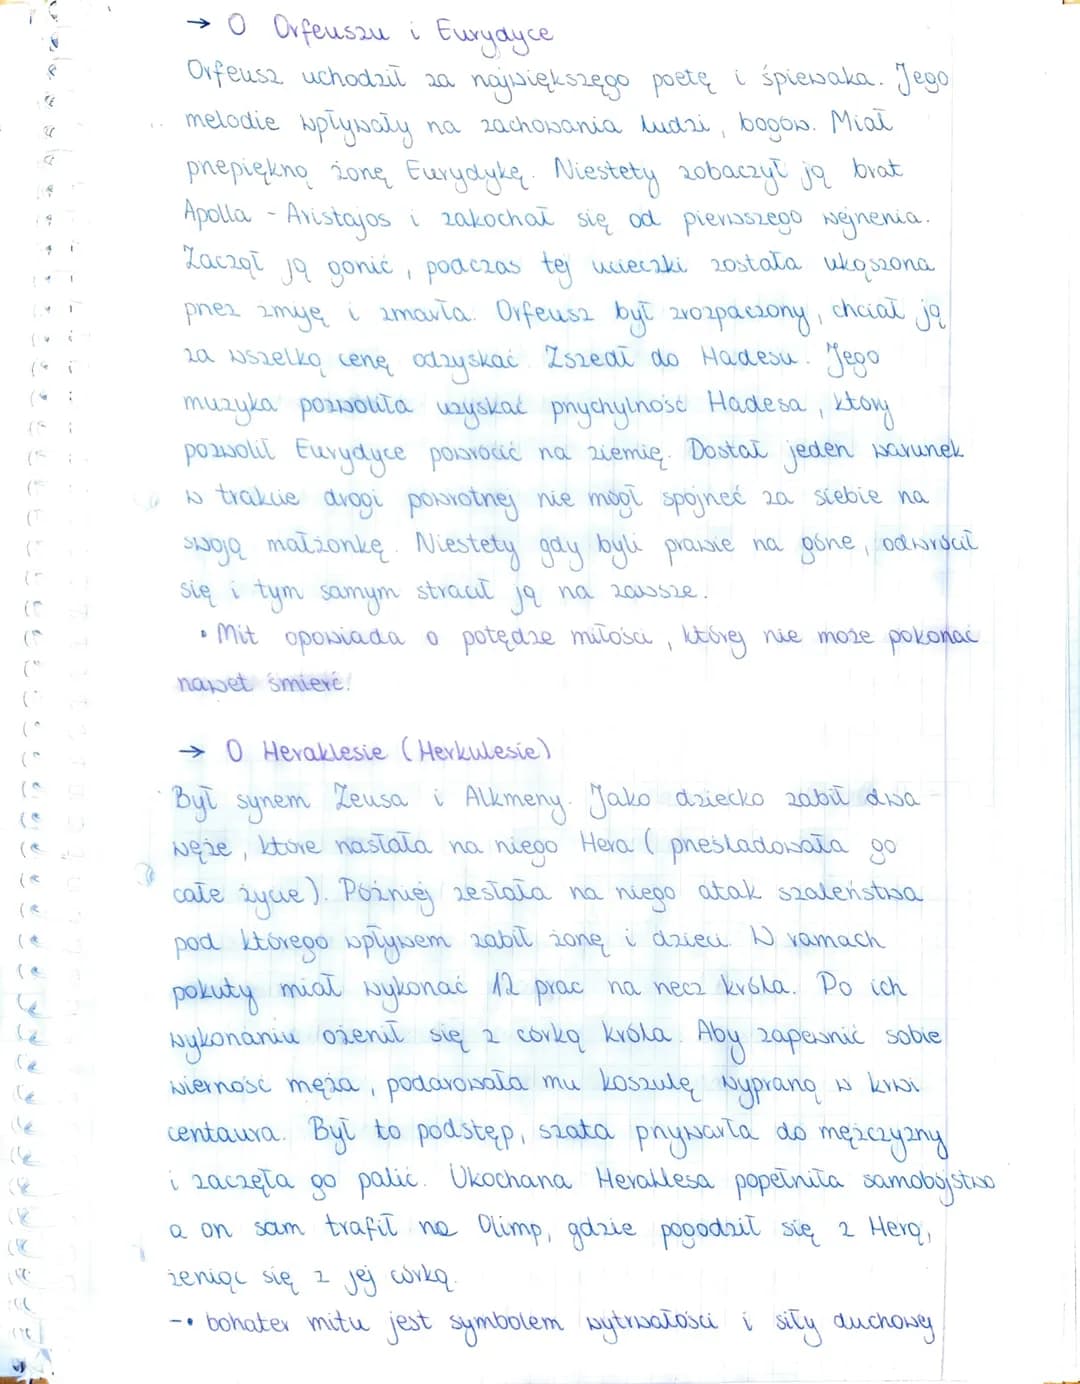 → O Orfeuszu i Eurydyce
Orfeusz uchodził za największego poetę i śpiewaka. Jego
melodie wpływały na zachowania ludzi, bogów. Miał
przepiękną żonę Eurydykę. Niestety zobaczył ją brat
Apolla - Aristajos i zakochał się od pierwszego wejrzenia.
Zaczął ją gonić, podczas tej ucieczki została ukąszona
przez żmiję i zmarła. Orfeusz był zrozpaczony, chciał ją
za wszelką cenę odzyskać. Zszedł do Hadesu. Jego
muzyka pozwoliła uzyskać przychylność Hadesa, który
pozwolił Eurydyce powrócić na ziemię. Dostał jeden warunek
w trakcie drogi powrotnej nie mógł spojrzeć za siebie na
swoją małżonkę. Niestety gdy byli prawie na górze, odwrócił
się i tym samym stracił ją na zawsze.
• Mit opowiada o potędze miłości, której nie może pokonać
nawet śmierć.
→ O Heraklesie (Herkulesie)
Był synem Zeusa i Alkmeny. Jako dziecko zabił dwa
węże, które nasłała na niego Hera (prześladowała go
całe życie). Później zesłała na niego atak szaleństwa
pod którego wpływem zabił żonę i dzieci. W ramach
pokuty miał wykonać 12 prac na rzecz króla. Po ich
wykonaniu ożenił się z córką króla. Aby zapewnić sobie
wierność męża, podarowała mu koszulę wypraną w krwi
centaura. Był to podstęp, szata przywarła do mężczyzny
i zaczęła go palić. Ukochana Heraklesa popełniła samobójstwo
a on sam trafił na Olimp, gdzie pogodził się z Herą,
żeniąc się z jej córką.
-• bohater mitu jest symbolem wytrwałości i siły duchowej